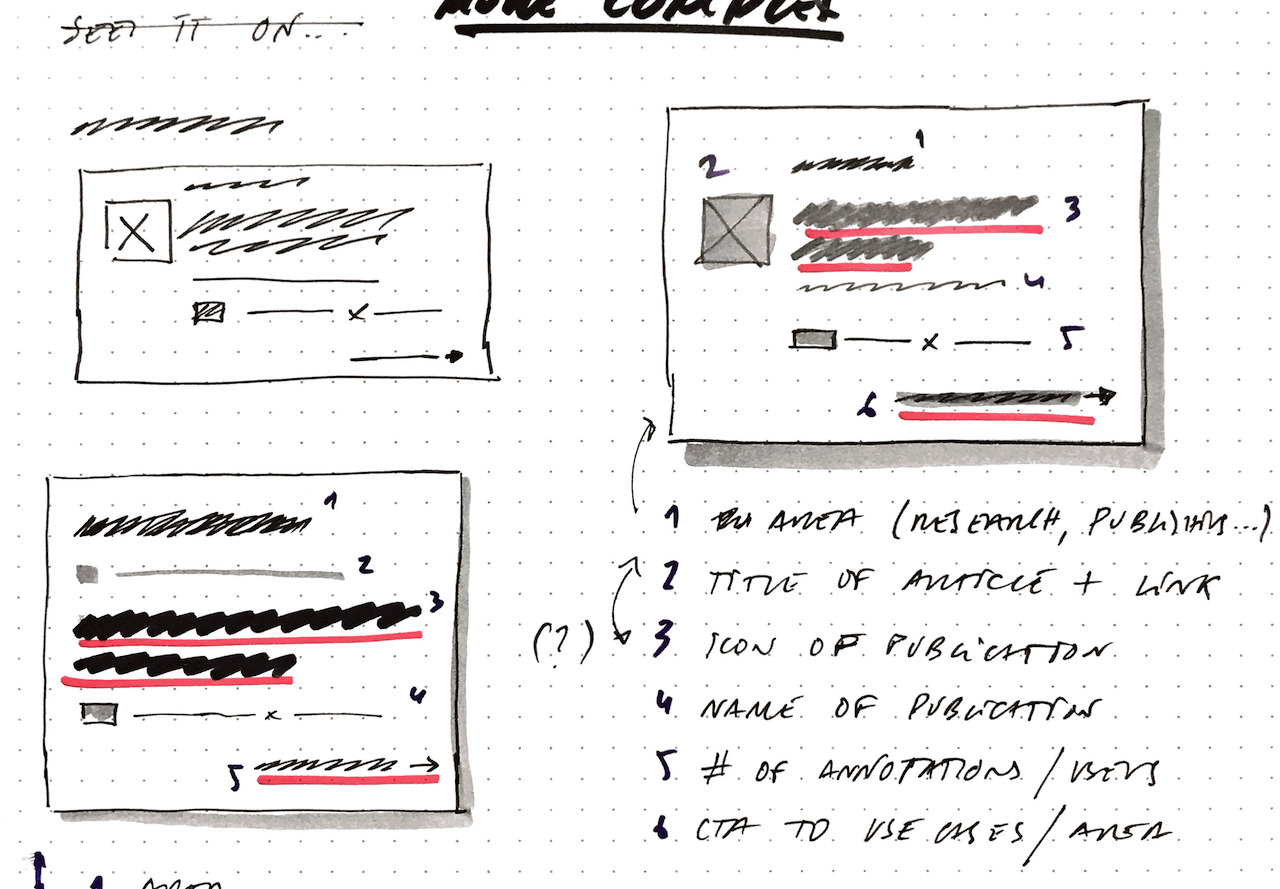 SEET IT ON...
MORE COMPLEX
1
2
3
4
5
6
1
2
3
4
5
1 AREA (RESEARCH, PUBLISHING...)
2 TITLE OF ARTICLE + LINK
(?) 3 ICON OF PUBLICATION
4 NAME OF PUBLICATION
5 # OF ANNOTATIONS/USERS
6 CTA TO USE CASES/AREA
1 AREA